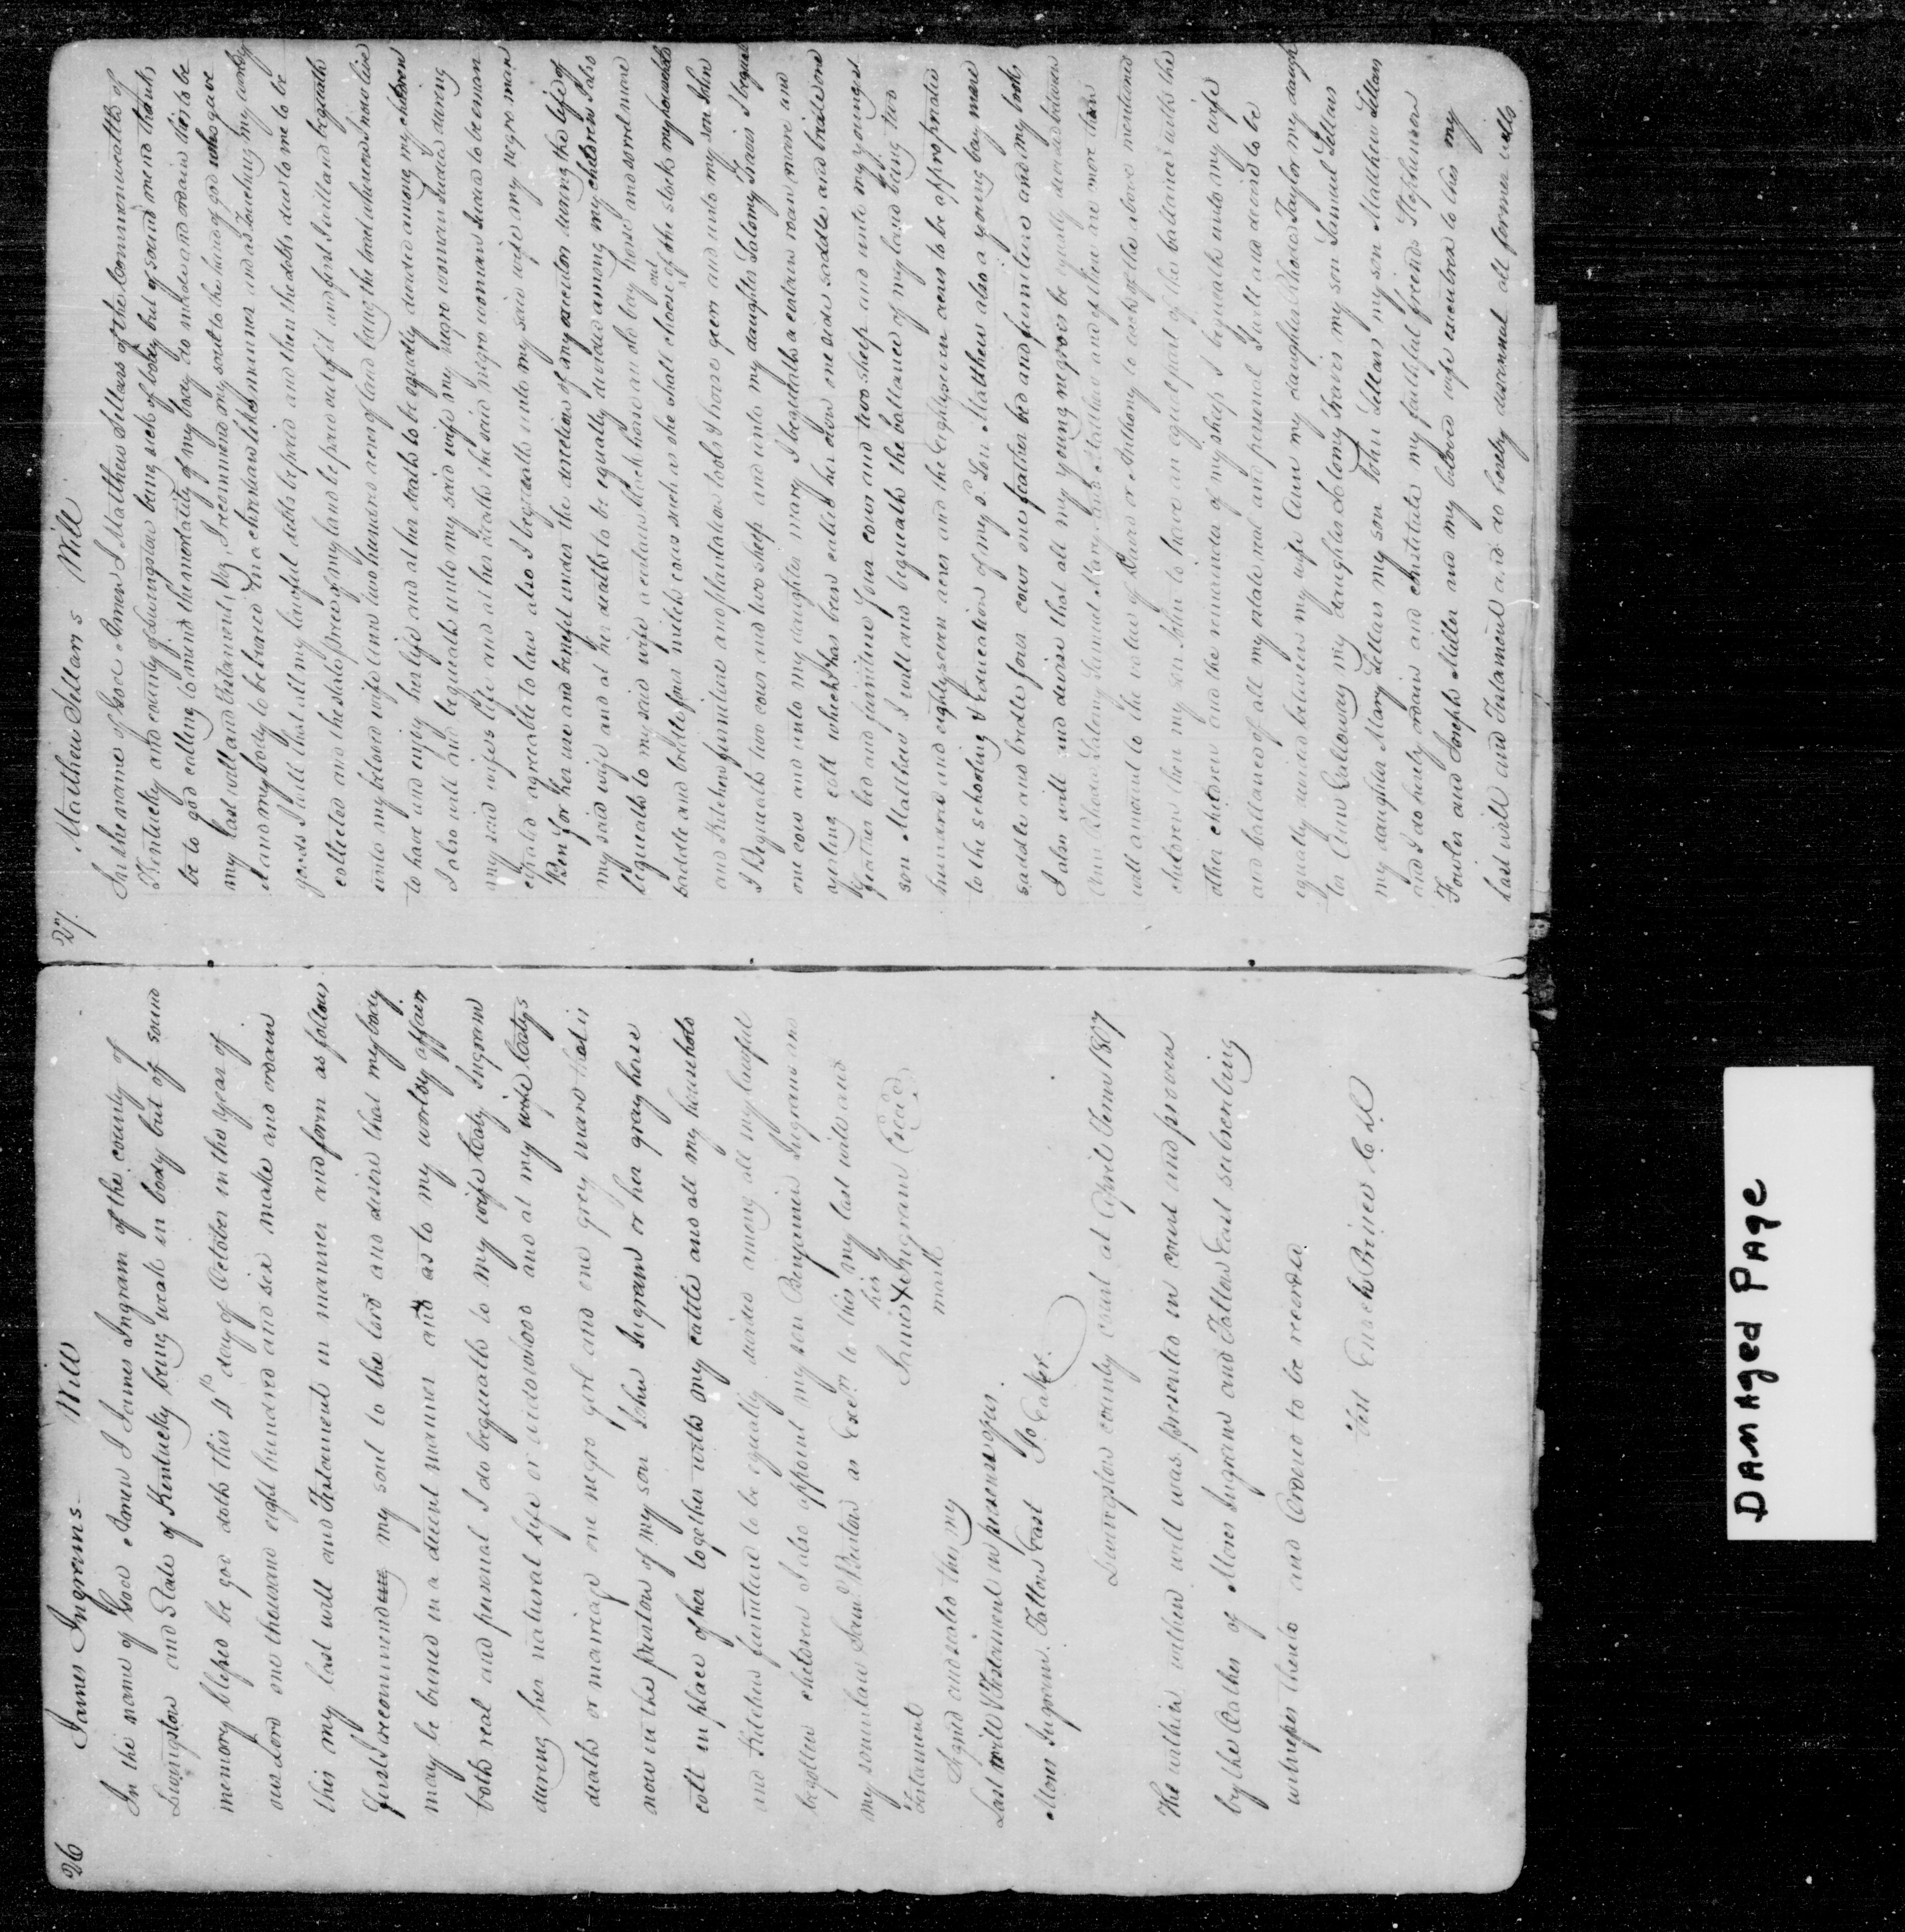 26 James Ingrams Will
In the name of God Amen I James Ingram of the county of
Livingston and State of Kentucky being weak in body but of sound
memory blessed be god doth this 4th day of October in the year of
our lord one thousand eight hundred and six make and ordain
this my last will and Testament in manner and form as follows
first I recommend my soul to the lord and desire that my body
may be buried in a decent manner and as to my worldy affairs
both real and personal I do bequeath to my wife Caty Ingram
during her natural life or widowhood and at my wife Catys
death or marriage one negro girl and one grey mare that is
now in the possession of my son John Ingram or her gray horse
colt in place of her together with my cattle and all my household
and Kitchen furniture to be equally divided among all my lawful
begotten children I also appoint my son Benjamin Ingram and
my son in law as Exers to this my last will and
Testament
his
James X Ingram Seal
mark
Signed and sealed this my
Last will & Testament in presence of us
Moses Ingram. Jo. Eaker.
Livingston county court at April Term 1807
The within will was presented in court and proven
by the Oaths of Moses Ingram and East subscribing
witnesses thereto and Ordered to be recorded
Test Enoch Prince C L
27. Mathew Sellars Will
In the name of God Amen I Matthew Sellars of the Commonwealth of
Kentucky and county of Livingston being sick of body but of sound mend thanks
be to god calling to mind the mortality of my body do make and ordain this to be
my last will and Testament, Viz, I recommend my soul to the hand of god who gave
it and my body to be buried in a christian like manner and as Touching my worldly
goods I will that all my lawful debts be paid and then the debts due to me to be
collected and the state price of my land be paid out of it and first I will and bequeath
unto my beloved wife Ann two hundred acres of land being the tract whereon I now live
to have and enjoy her life and at her death to be equally divided among my children
I also will and bequeath unto my said wife my negro woman Judea during
my said wifes life and at her death the said negro woman Judea to be eman
cipated agreeable to law also I bequeath unto my said wife my negro man
Ben for her use and benefit under the direction of my executor during the life of
my said wife and at her death to be equally divided among my children I also
bequeath to my said wife a certain black horse and also bay horse and sorrel mare
saddle and bridle four milch cows such as she shall choose out of the stock my household
and Kitchen furniture and plantation tools & horses geer and unto my son John
I Bequeath two cows and two sheep and unto my daughter Salomy Travis I beque
one cow and unto my daughter Mary I bequeath a certain roan mare and
yerling colt which has been called her own one side saddle and bridle one
feather bed and furniture four cows and two sheep and unto my youngest
son Matthew I will and bequeath the ballance of my land being two
hundred and eighty seven acres and the eighty seven acres to be appropriated
to the schooling & Education of my sd. Son Matthew also a young bay mare
saddle and bridle four cows one feather bed and furniture and my books
I also will and devise that all my young negroes be equally divided between
Ann Rhoda Salomy Samuel Mary and Matthew and if there are more than
will amount to the value of or Anthony to each of the above mentioned
children then my son John to have an equal part of the ballance with the
other children and the remainder of my sheep I bequeath unto my wife
and ballance of all my estate real and personal I will and devise to be
equally divided between my wife Ann my daughter Rhoda Taylor my daugh
ter Ann Galloway my daughter Salomy Travis my son Samuel Sellars
my daughter Mary Sellars my son John Sellars my son Mathew Sellars
and I do hereby ordain and constitute my faithful friends Stephenson
Fowler and Joseph Miller and my beloved wife executrex to this my
Last will and Testament and do hereby disannul all former wills
DAMAged PAge